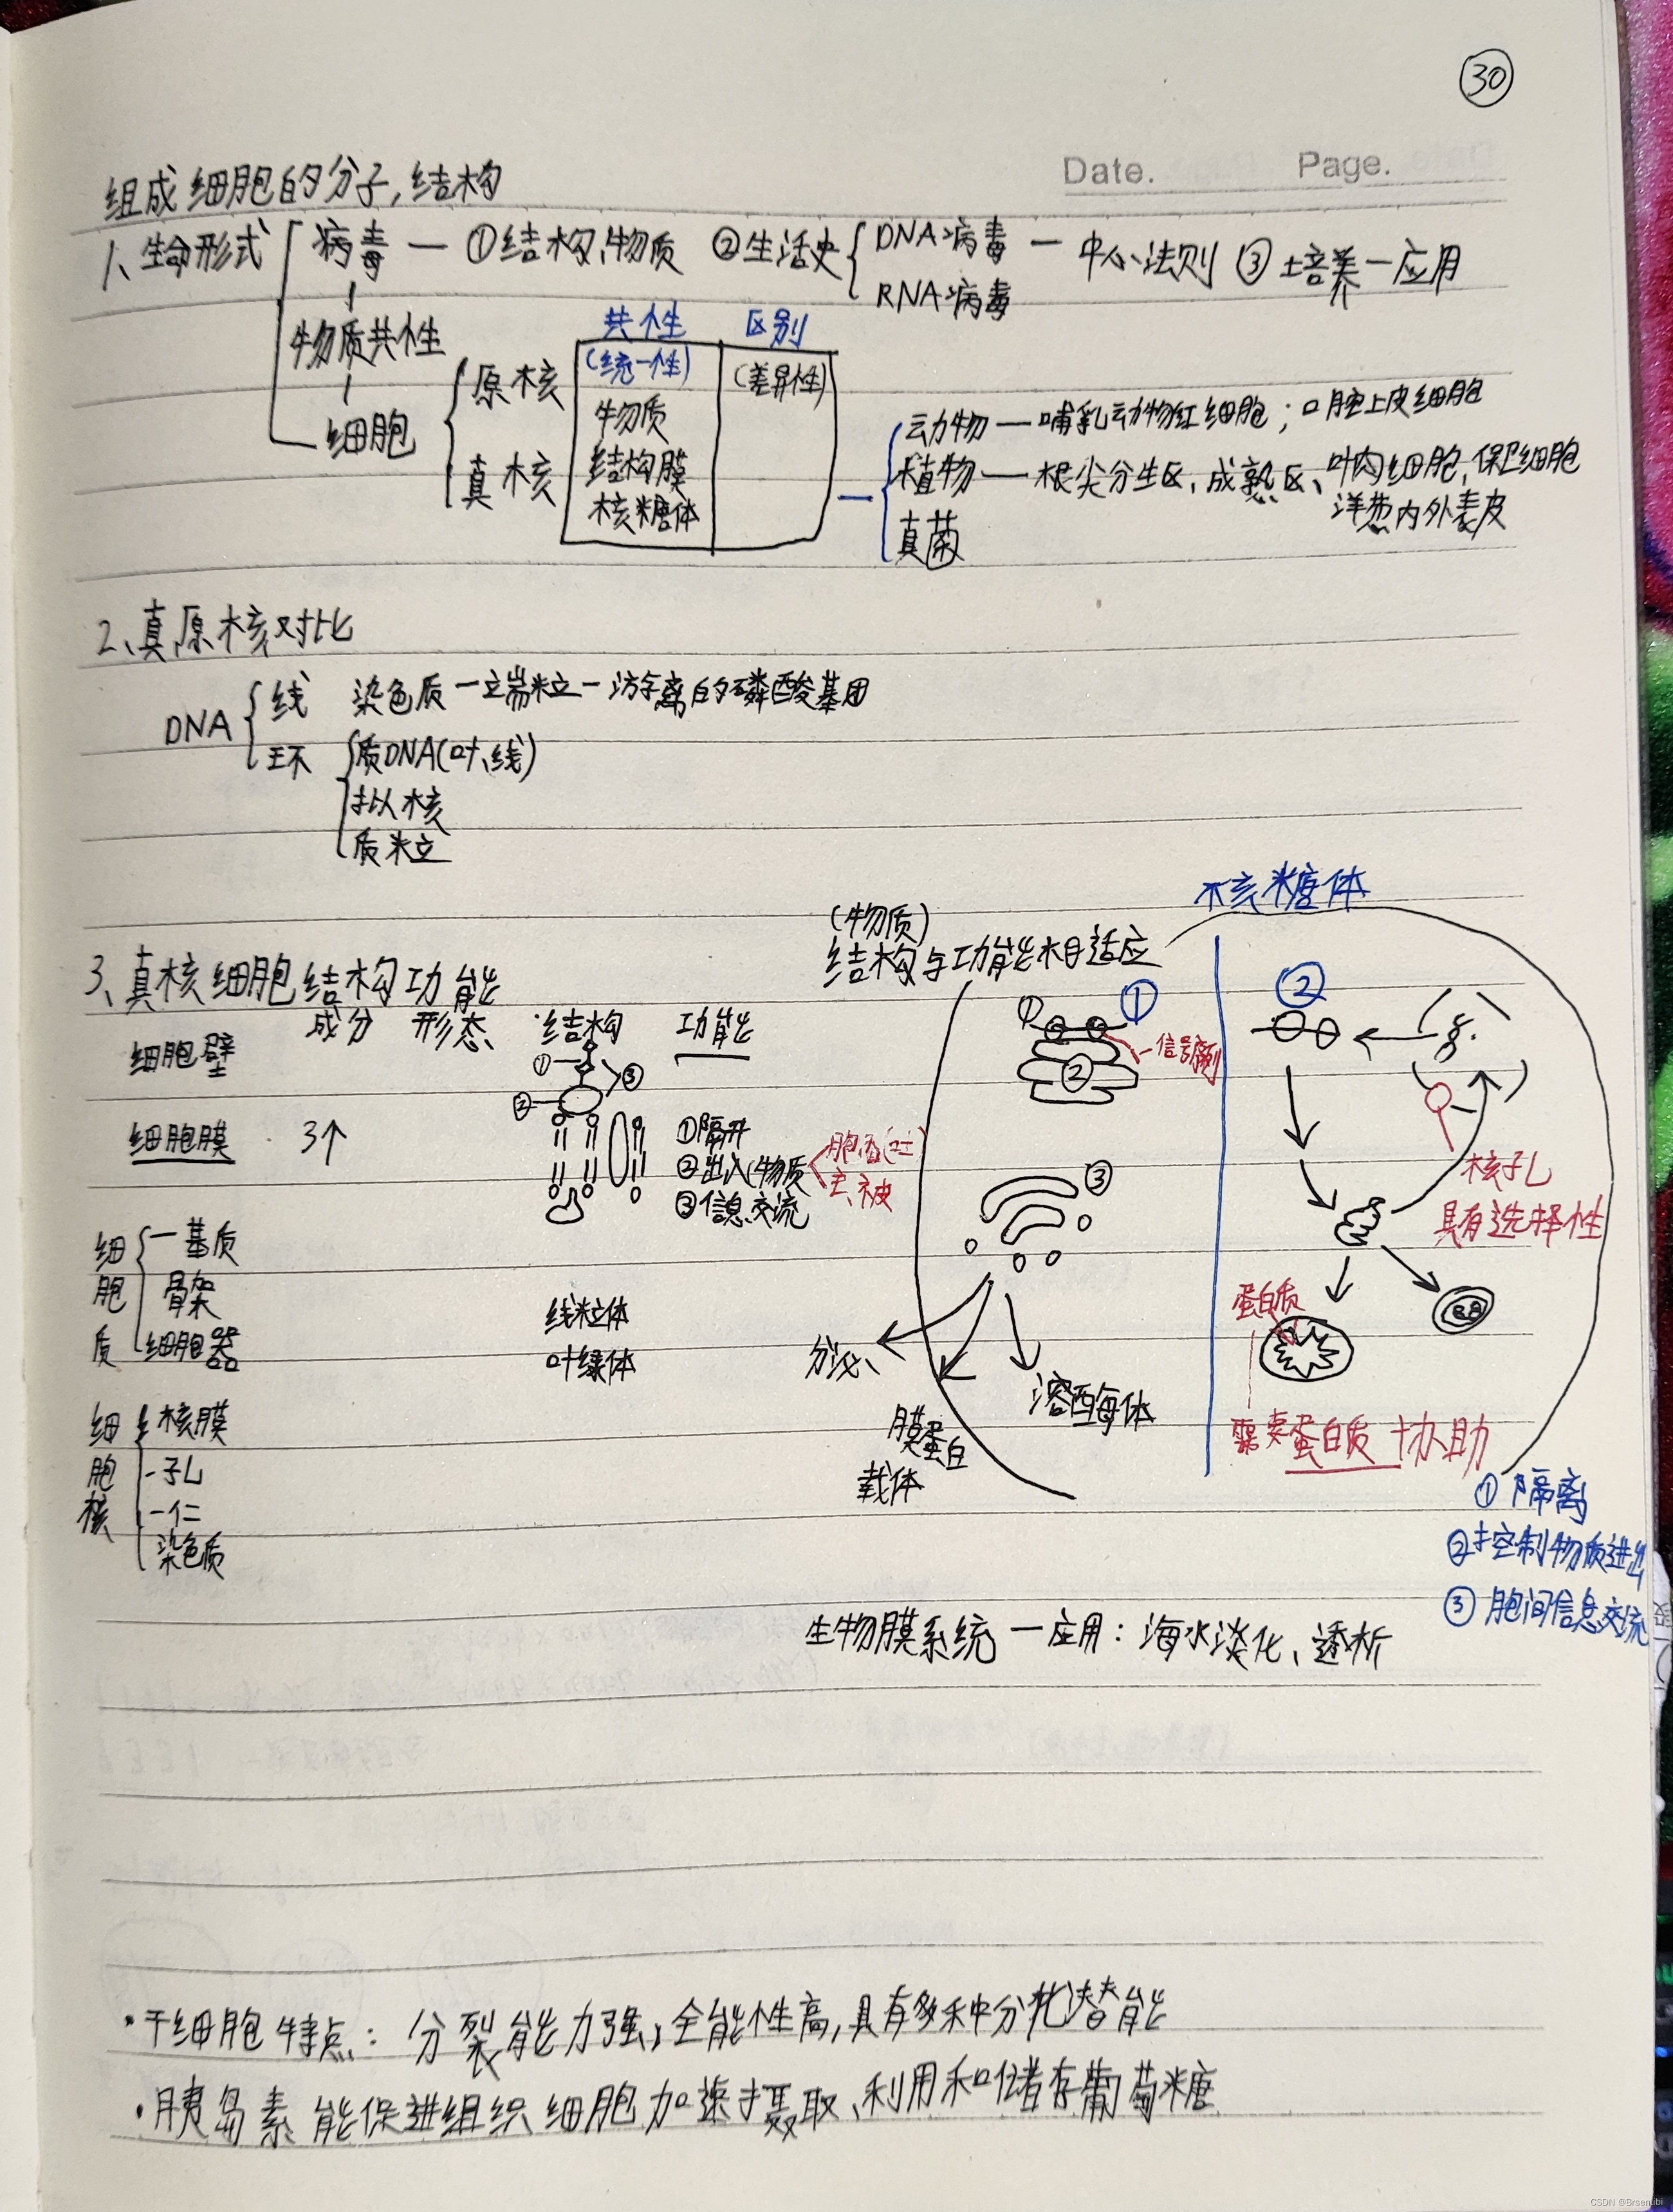 30
Date. Page.
组成细胞的分子,结构
1、生命形式 病毒 — ①结构、物质 ②生活史 DNA病毒 — 中心法则 ③培养—应用
RNA病毒
物质共性
共性 区别
(统一性) (差异性)
细胞 原核 物质
真核 结构膜
核糖体
动物 — 哺乳动物红细胞;口腔上皮细胞
植物 — 根尖分生区,成熟区、叶肉细胞,保卫细胞
洋葱内外表皮
真菌
2、真,原核对比
DNA 线 染色质—端粒—游离的磷酸基团
环 质DNA(叶、线)
拟核
质粒
3、真核细胞结构功能
成分 形态 结构 功能
细胞壁
① ② ③
细胞膜 3个
①隔开
②出入(物质 胞吞(吐
主、被
③信息交流
细胞质 基质
骨架
细胞器
线粒体
叶绿体
细胞核 核膜
孔
仁
染色质
(物质)
结构与功能相适应
核糖体
① ①
信号序列
②
③
分泌
膜蛋白
载体
溶酶体
②
核孔
具有选择性
蛋白质
需要蛋白质协助
①隔离
②控制物质进出
③胞间信息交流
生物膜系统—应用:海水淡化、透析
·干细胞特点:分裂能力强,全能性高,具有多种分化潜能
·胰岛素能促进组织细胞加速摄取、利用和储存葡萄糖
CSDN @Brsenibi